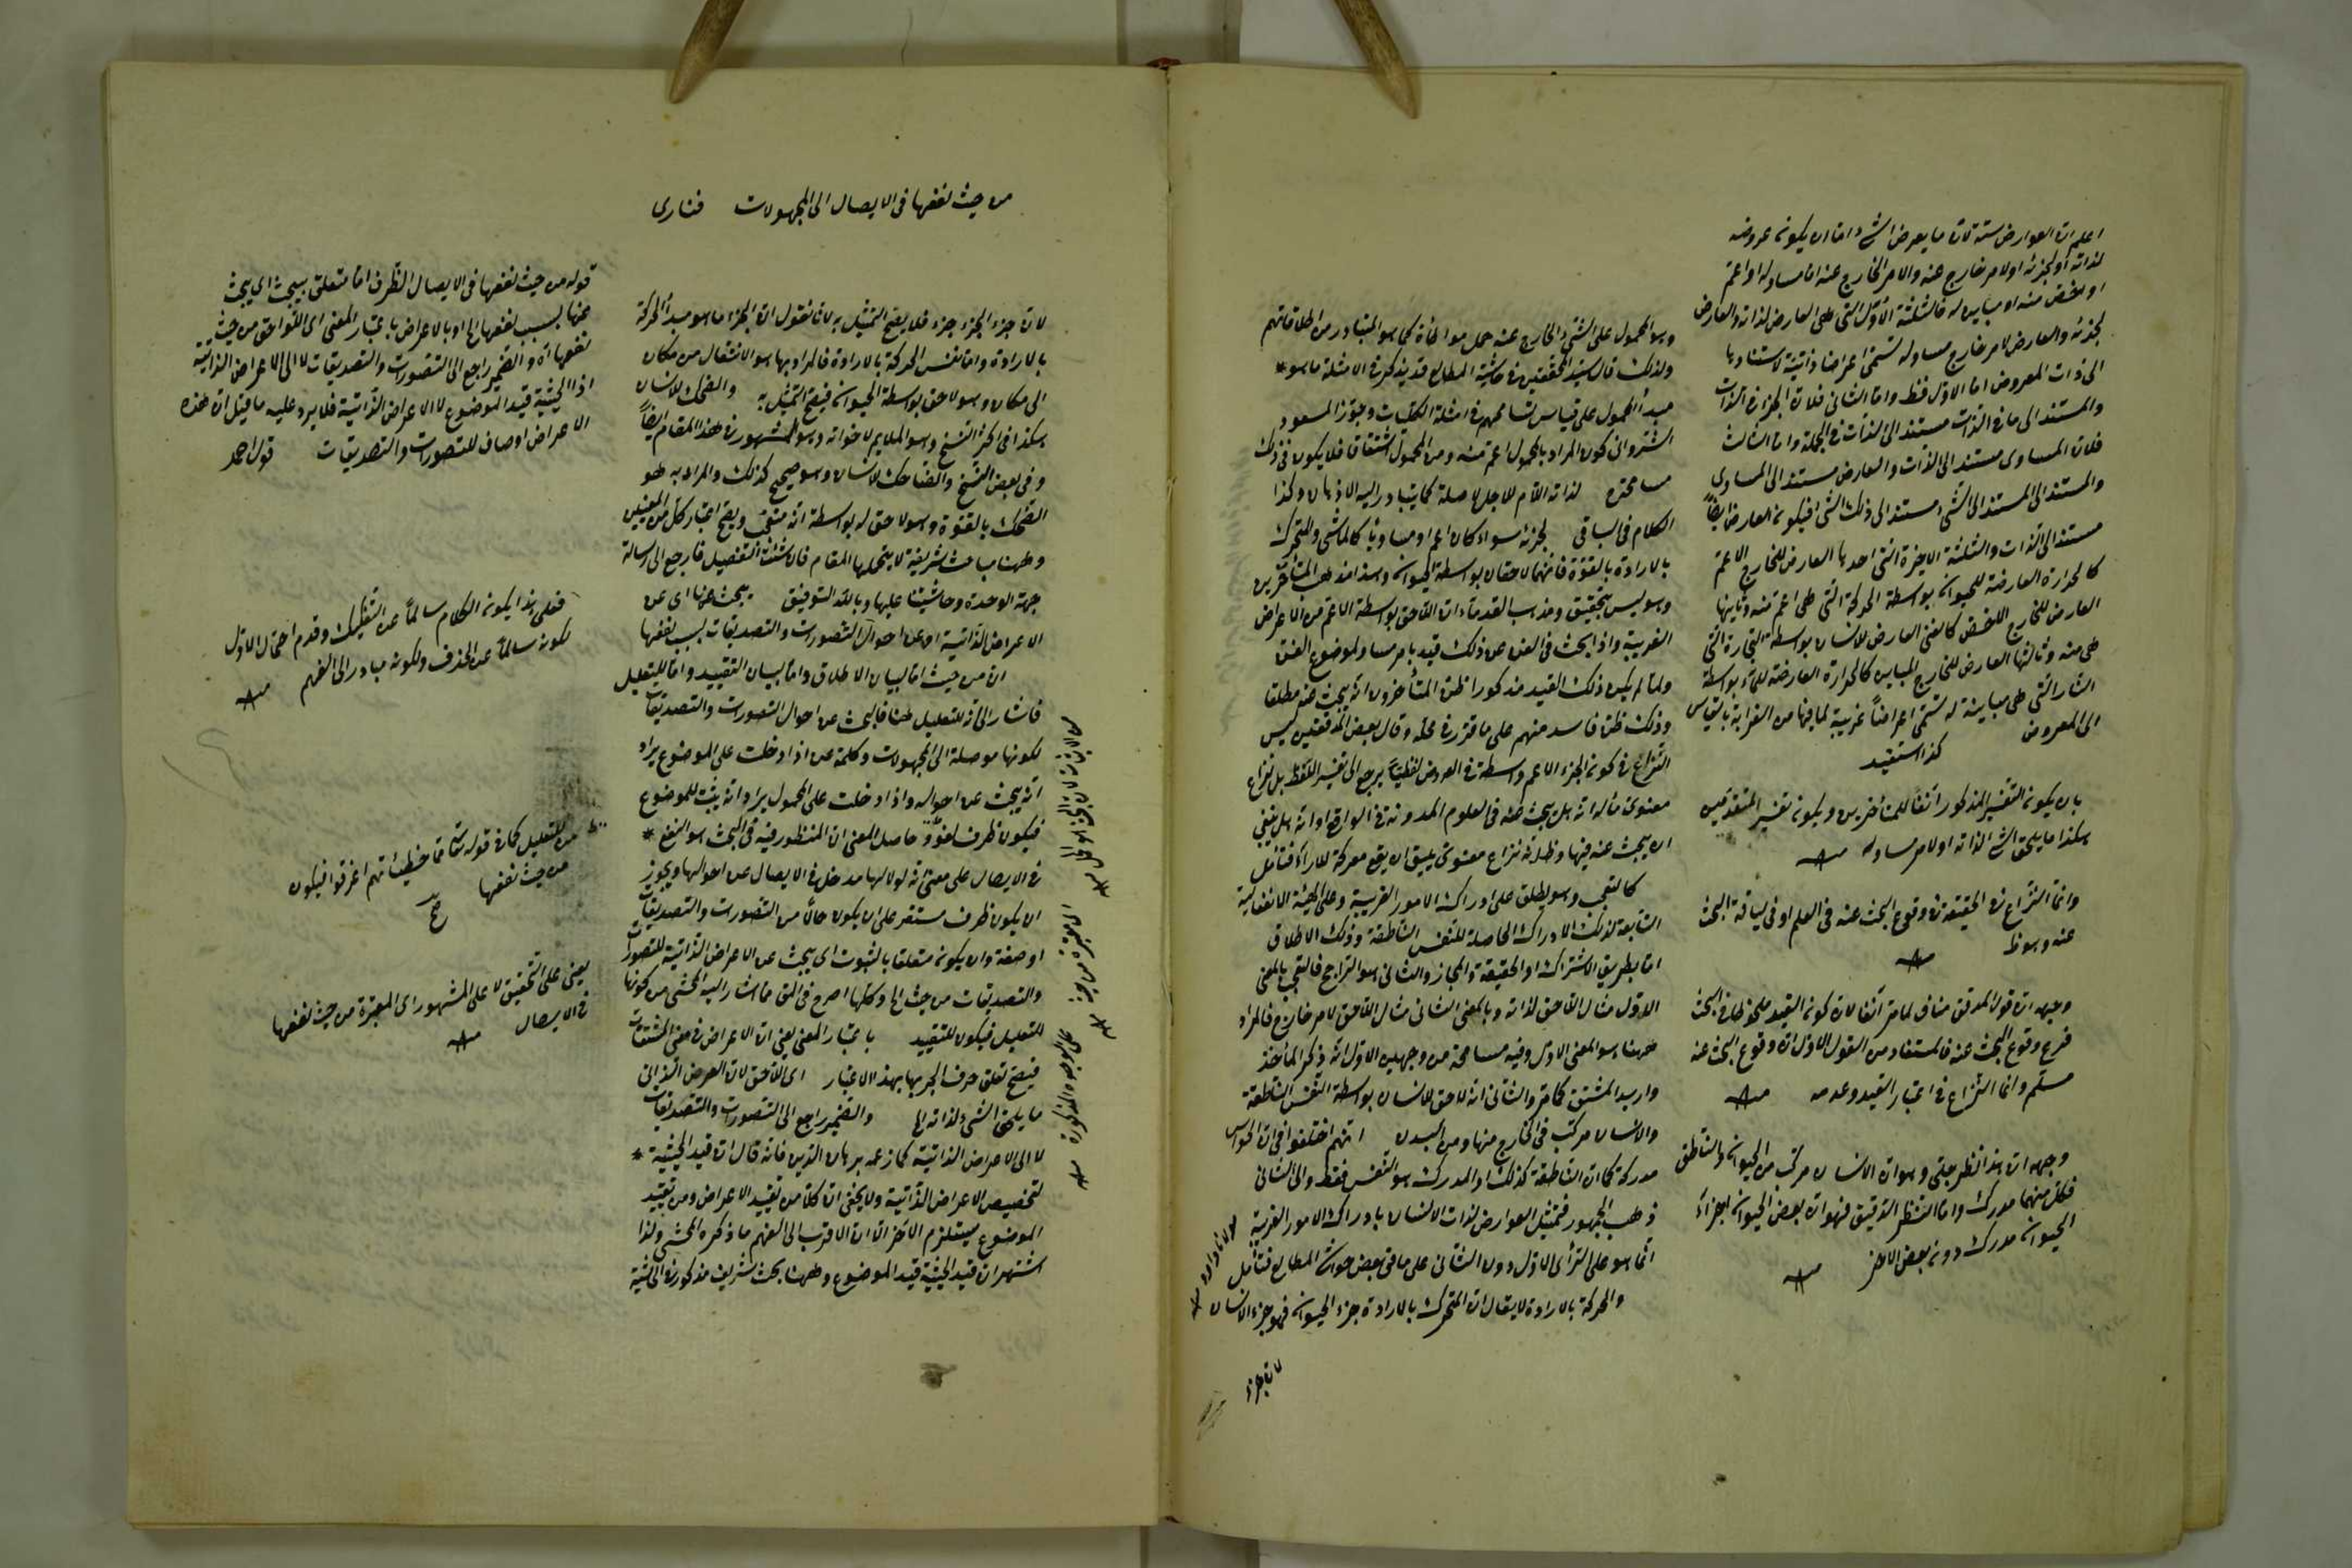 اعلم ان العوارض ستة لان ما يعرض الشئ اما ان يكون عروضه
لذاته او لجزئه او لامر خارج عنه والامر الخارج عنه اما مساو له او اعم
او اخص منه او مباين له فالثلثة الاول التى هى العارض لذاته والعارض
لجزئه والعارض لامر خارج مساو له تسمى اعراضا ذاتية لاستنادها
الى ذات المعروض اما الاول فظ واما الثانى فلان الجزء فى الذات
والمستند الى ما فى الذات مستند الى الذات فى الجملة واما الثالث
فلان المساوى مستند الى الذات والعارض مستند الى المساوى
والمستند الى المستند الى الشئ مستند الى ذلك الشئ فيكون العارض ايضا
مستندا الى الذات والثلثة الاخيرة التى احدها العارض للخارج الاعم
كالحرارة العارضة للحيوان بواسطة الحركة التى هى اعم منه وثانيها
العارض للخارج الاخص كالغنى العارض للانسان بواسطة التجارة التى
هى منه وثالثها العارض للخارج المباين كالحرارة العارضة للماء بواسطة
النار التى هى مباينة له تسمى اعراضا غريبة لما فيها من الغرابة بالقياس
الى المعروض
كذا استفيد
بان يكون التفسير المذكور آنفا للمتأخرين ويكون تفسير المتقدمين
هكذا ما يلحق الشئ لذاته او لامر مساو له منه
وانما النزاع فى الحقيقة فى وقوع البحث عنه فى العلم او فى لياقة البحث
عنه وهو ظ منه
وجهه ان قول المدقق مناف لما مر آنفا لان كون القيد ملحوظا فى البحث
فرع وقوع البحث عنه فالمستفاد من القول الاول ان وقوع البحث عنه
مسلم وانما النزاع فى اعتبار القيد وعدمه منه
وجهه ان هذا نظر جلى وهو ان الانسان مركب من الحيوان والناطق
فكل منهما مدرك واما النظر الدقيق فهو ان بعض الحيوان اجزاء
الحيوان مدرك دون بعض الاخر منه
وهو المحمول على الشئ الخارج عنه حمل مواطأة كما هو المتبادر من اطلاقاتهم
ولذلك قال سيد المحققين فى حاشية المطالع قد يذكر فى الامثلة ما هو *
مبدأ المحمول على قياس تسامحهم فى امثلة الكليات وجوز المسعود
الشروانى كون المراد بالمحمول اعم منه ومن المحمول اشتقاقا فلا يكون فى ذلك
مسامحة لذاته اللام للاجل لا صلة كما يتبادر اليه الاذهان وكذا
الكلام فى الباقى لجزئه سواء كان اعم او مساويا كالماشى والمتحرك
بالارادة بالقوة فانهما لاحقان بواسطة الحيوان وهذا مذهب المتأخرين
وهو ليس بتحقيق ومذهب القدماء ان اللاحق بواسطة الاعم من الاعراض
الغريبة واذا بحث فى الفن عن ذلك قيد بامر مساو لموضوع الفن
ولما لم يكن ذلك القيد مذكورا ظن المتأخرون انه يبحث عنه مطلقا
وذلك ظن فاسد منهم على ما قرر فى محله وقال بعض المدققين ليس
النزاع فى كون الجزء الاعم واسطة فى العروض لفظيا يرجع الى تفسير اللفظ بل نزاع
معنوى مآله انه هل يبحث عنه فى العلوم المدونة فى الواقع او انه هل ينبغى
ان يبحث عنه فيها وظ انه نزاع معنوى يليق ان يقع معركة للآراء فتأمل
كالتعجب وهو يطلق على ادراك الامور الغريبة وعلى الهيئة الانفعالية
التابعة لذلك الادراك الحاصلة للنفس الناطقة وذلك الاطلاق
اما بطريق الاشتراك او الحقيقة والمجاز والثانى هو الراجح فالتعجب بالمعنى
الاول مثال اللاحق لذاته وبالمعنى الثانى مثال اللاحق لامر خارج فالمراد
ههنا هو المعنى الاول وفيه مسامحة من وجهين الاول انه ذكر المأخذ
واريد المشتق كما مر والثانى انه لاحق للانسان بواسطة النفس الناطقة
والانسان مركب فى الخارج منها ومن البدن انهم اختلفوا فى ان الحواس
مدركة كما ان الناطقة كذلك او المدرك هو النفس فقط والى الثانى
ذهب الجمهور فتمثيل العوارض لذات الانسان بادراك الامور الغريبة
انما هو على الرأى الاول دون الثانى على ما فى بعض حواشى المطالع فتأمل
والحركة بالارادة لا يقال ان المتحرك بالارادة جزء الحيوان فهو جزء الانسان
لان جزء
من حيث نفعها فى الايصال الى المجهولات فنارى
لان جزء الجزء جزء فلا يصح التمثيل به لانا نقول ان الجزء ما هو مبدأ الحركة
بالارادة واما نفس الحركة بالارادة فالمراد بها هو الانتقال من مكان
الى مكان وهو لاحق بواسطة الحيوان فيصح التمثيل به والضحك للانسان
هكذا فى اكثر النسخ وهو الملايم لاخواته وهو المشهور فى هذا المقام ايضا
وفى بعض النسخ والضاحك للانسان وهو صحيح كذلك والمراد به هو
الضحك بالقوة وهو لاحق له بواسطة انه متعجب ويصح اعتبار كل من المعنيين
وههنا مباحث شريفة لا يتحملها المقام فان شئت التفصيل فارجع الى رسالة
جهة الوحدة وحاشيتنا عليها وبالله التوفيق يبحث عنها اى عن
الاعراض الذاتية او عن احوال التصورات والتصديقات بسبب نفعها
ان من حيث اما لبيان الاطلاق واما لبيان التقييد واما للتعليل
فاشار الى انه للتعليل ههنا فالبحث عن احوال التصورات والتصديقات
لكونها موصلة الى المجهولات وكلمة عن اذا دخلت على الموضوع يراد
انه يبحث عن احواله واذا دخلت على المحمول يراد انه يثبت للموضوع
فيكون ظرف لغو حاصل المعنى ان المنظور فيه فى البحث هو النفع *
فى الايصال على معنى انه لولا لها مدخل فى الايصال عن احوالها ويجوز
ان يكون ظرف مستقر على ان يكون حالا من التصورات والتصديقات
او صفة وان يكون متعلقا بالثبوت اى يبحث عن الاعراض الذاتية للتصورات
والتصديقات من حيث الخ وكلها اصرح فى التى ما اشار اليه المحشى من كونها
للتعليل فيكون للتقييد باعتبار المعنى يعنى ان الاعراض فى معنى المشتقات
فيصح تعلق حرف الجر بها بهذا الاعتبار اى اللاحق لان العرض الذاتى
ما يلحق الشئ لذاته الخ والضمير راجع الى التصورات والتصديقات
لا الى الاعراض الذاتية كما زعمه برهان الدين فانه قال ان قيد الحيثية *
لتخصيص الاعراض الذاتية ولا يخفى ان كلا من تقييد الاعراض ومن تقييد
الموضوع يستلزم الآخر الا ان الاقرب الى الفهم ما ذكره المحشى ولذا
اشتهر ان قيد الحيثية قيد الموضوع وههنا بحث شريف مذكور فى الحاشية
قوله من حيث نفعها فى الايصال الظرف اما متعلق بيبحث اى يبحث
عنها بسبب نفعها الخ او بالاعراض باعتبار المعنى اى اللواحق من حيث
نفعها اه والضمير راجع الى التصورات والتصديقات لا الى الاعراض الذاتية
اذ الحيثية قيد الموضوع لا الاعراض الذاتية فلا يرد عليه ما قيل ان هذه
الاعراض اوصاف للتصورات والتصديقات قول احمد
فعلى هذا يكون الكلام سالما عن التفكيك وقدم احتمال الاول
لكونه سالما عن الحذف ولكونه مبادر الى الفهم منه
من للتعليل كما فى قوله تعالى مما خطيئاتهم اغرقوا فيكون
من حيث نفعها
يعنى على التحقيق لا على المشهور اى المعتبرة من حيث نفعها
فى الايصال منه